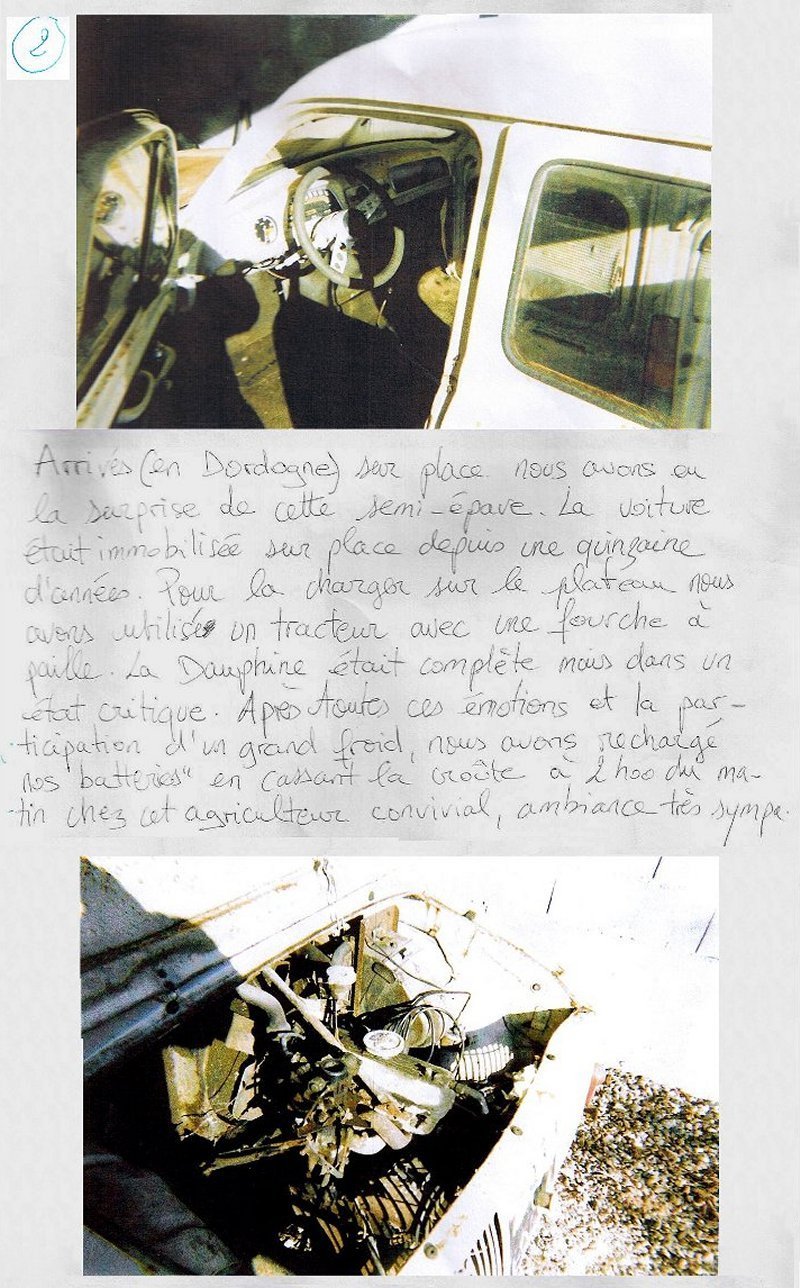 2
Arrivés (en Dordogne) sur place nous avons eu
la surprise de cette semi-épave. La voiture
était immobilisée sur place depuis une quinzaine
d'années. Pour la charger sur le plateau nous
avons utilisé un tracteur avec une fourche à
paille. La Dauphine était complète mais dans un
état critique. Après toutes ces émotions et la par-
ticipation d'un grand froid, nous avons rechargé
nos "batteries" en cassant la croûte à 2h00 du ma-
tin chez cet agriculteur convivial, ambiance très sympa.